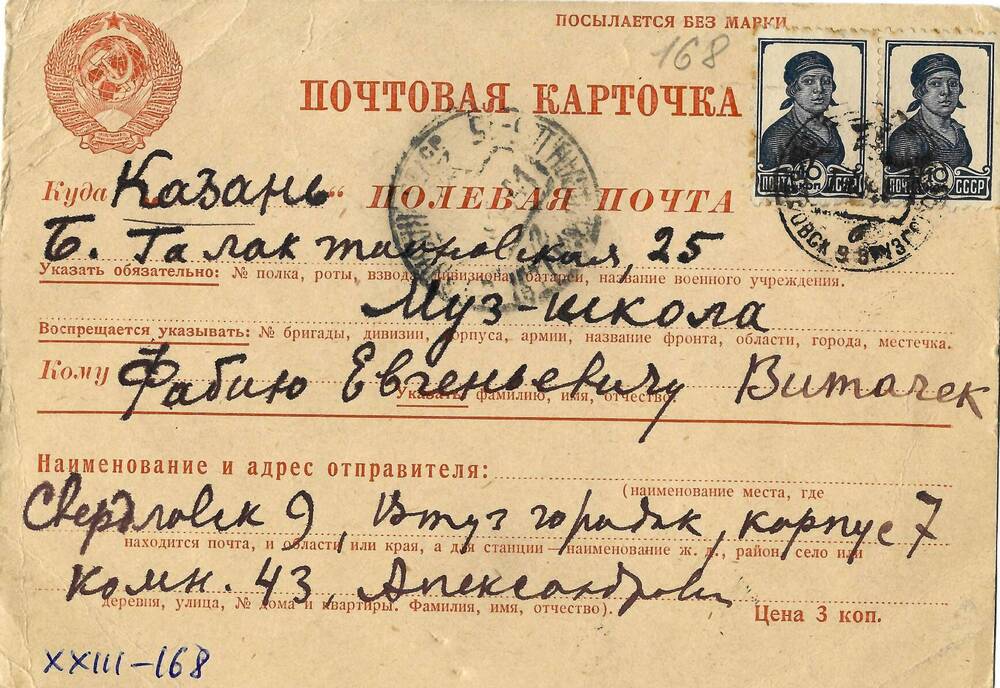 ПОСЫЛАЕТСЯ БЕЗ МАРКИ
168
ПОЧТОВАЯ КАРТОЧКА
ПОЧТА 10 КОП СССР ПОЧТА 10 КОП СССР
Куда Казань “ ПОЛЕВАЯ ПОЧТА
Б. Галактионовская, 25
Указать обязательно: № полка, роты, взвода, дивизиона, батареи, название военного учреждения.
Муз-школа
Воспрещается указывать: № бригады, дивизии, корпуса, армии, название фронта, области, города, местечка.
Кому Фабию Евгеньевичу Витачек
Указать фамилию, имя, отчество.
Наименование и адрес отправителя:
(наименование места, где
Свердловск 9, Втузгородок, корпус 7
находится почта, и области или края, а для станции—наименование ж. д., район, село или
комн. 43, Александров
деревня, улица, № дома и квартиры. Фамилия, имя, отчество).
Цена 3 коп.
XXIII-168